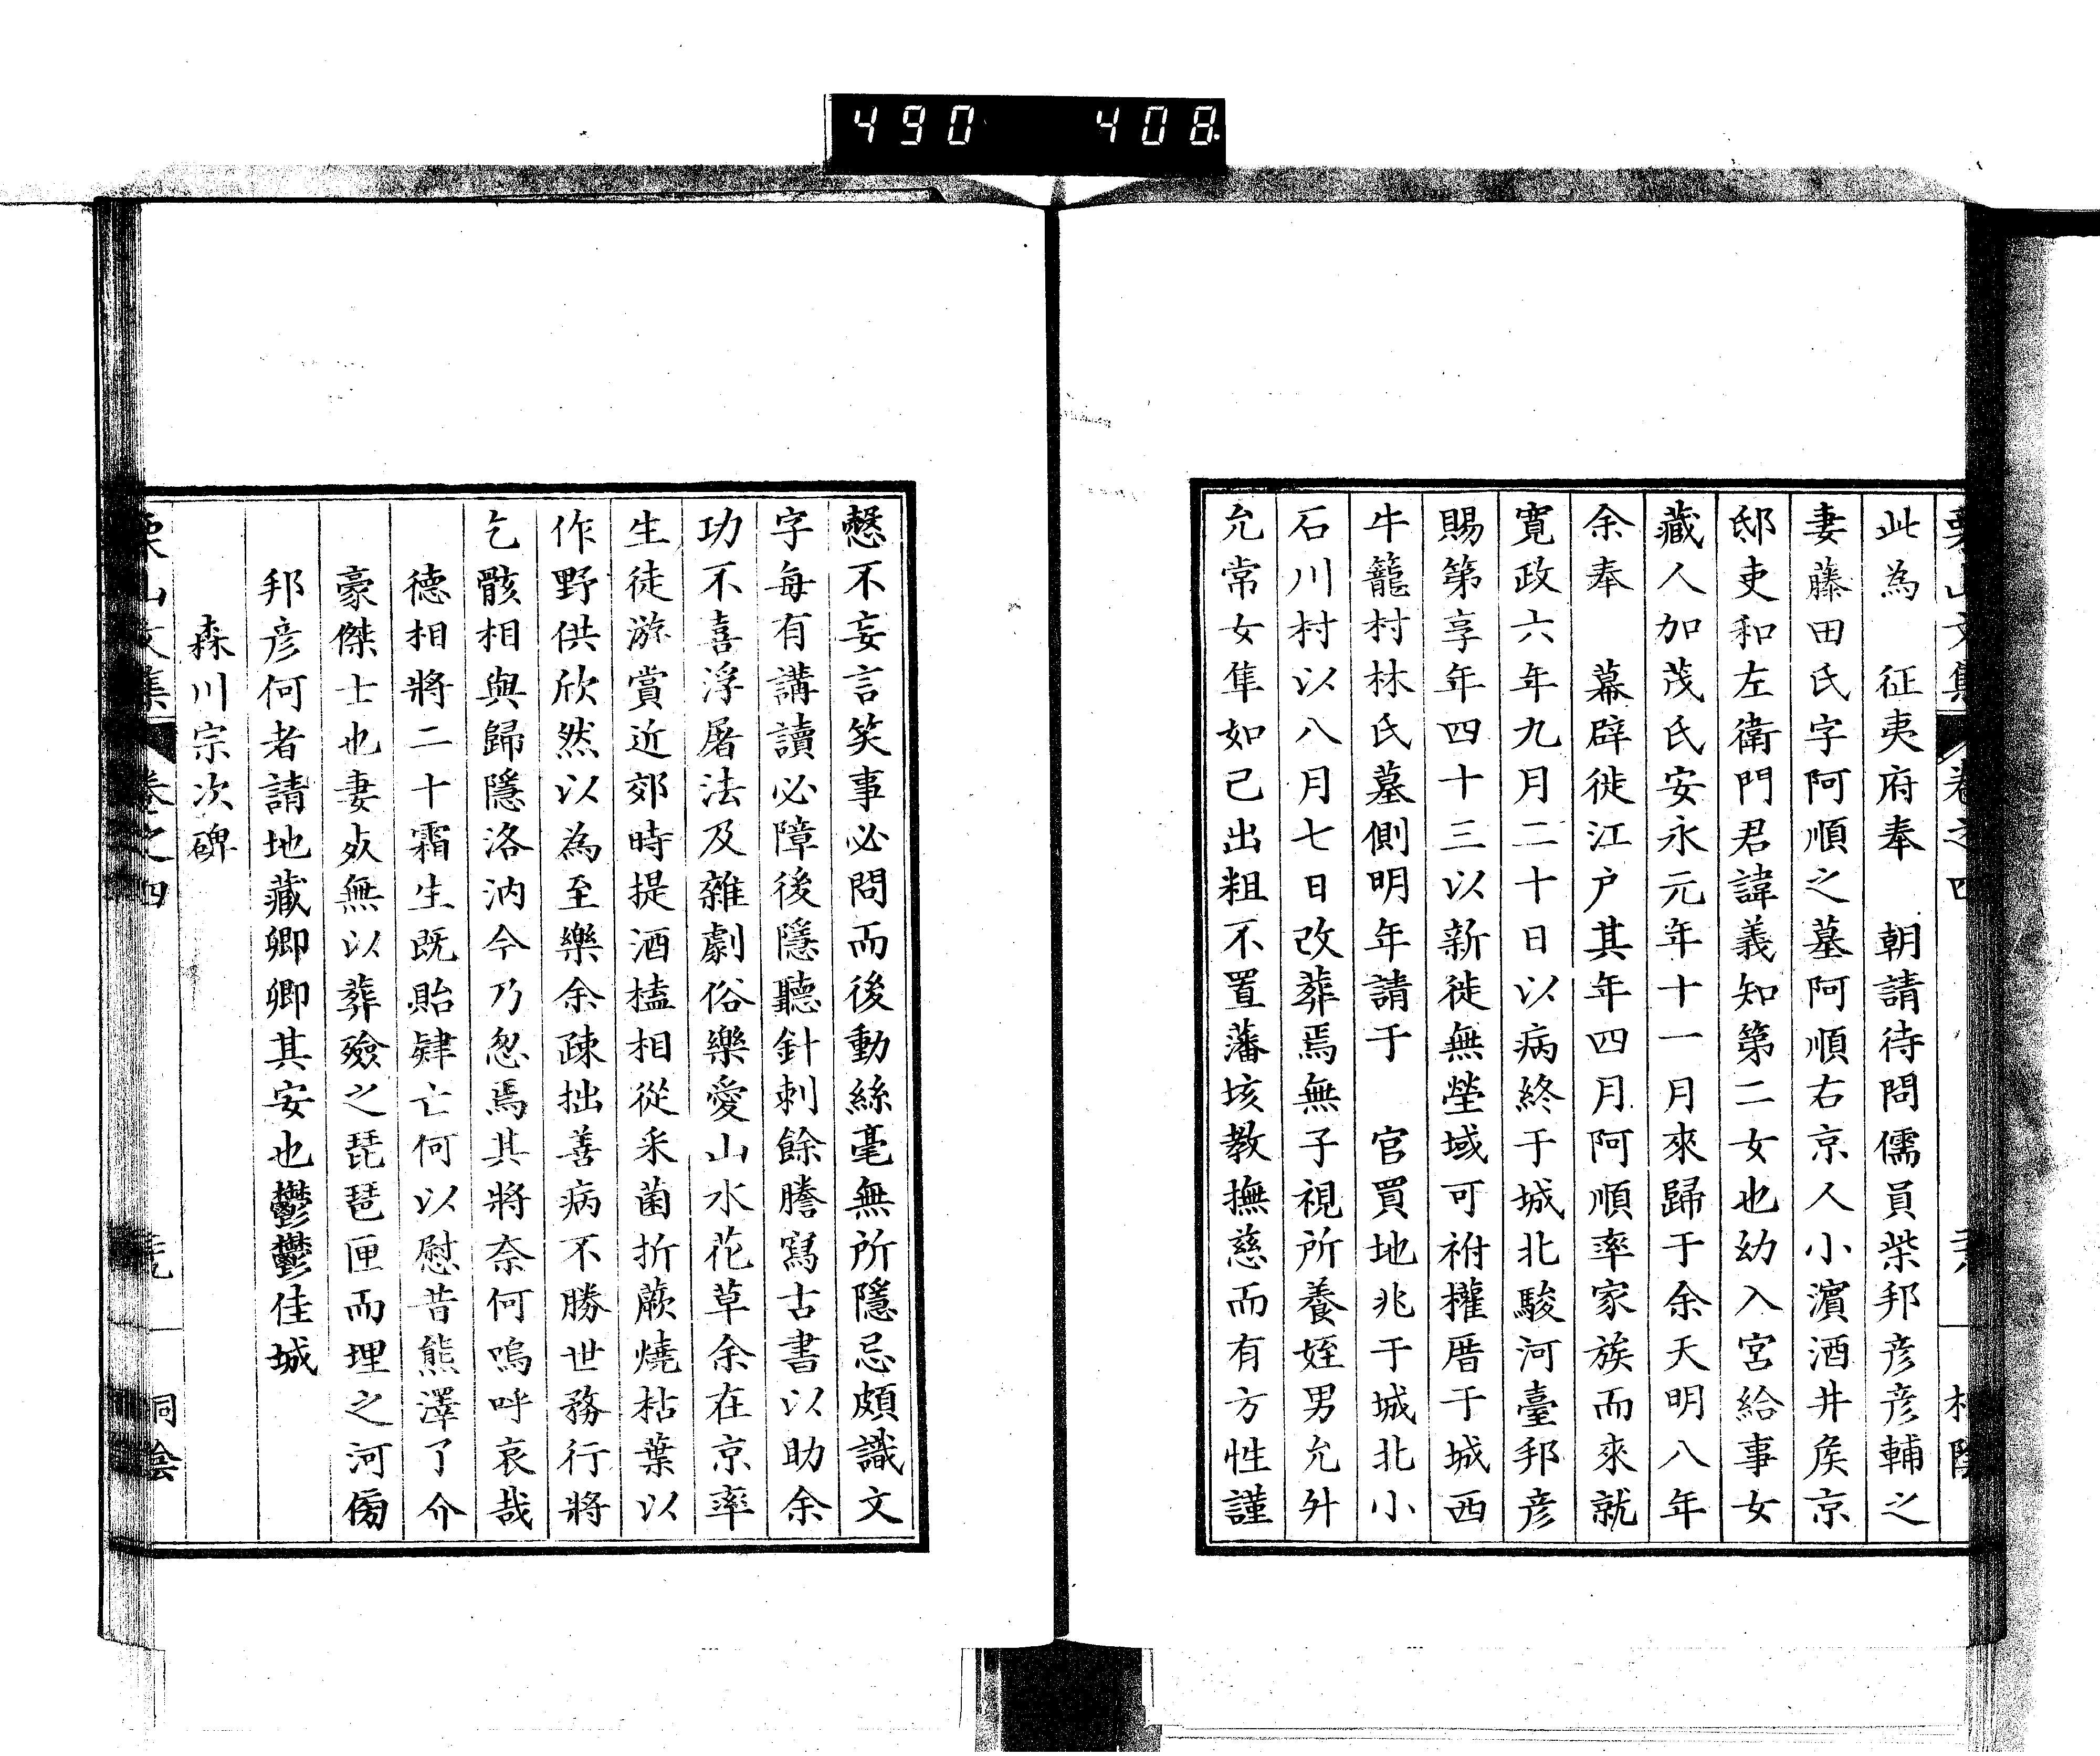 490 408
此為　征夷府奉　朝請待問儒員柴邦彦彦輔之
妻藤田氏字阿順之墓阿順右京人小濵酒井矦京
邸吏和左衛門君諱義知第二女也幼入宮給事女
藏人加茂氏安永元年十一月來歸于余天明八年
余奉　幕辟徙江戸其年四月阿順率家族而來就
寛政六年九月二十日以病終于城北駿河臺邦彦
賜第享年四十三以新徙無塋域可祔權厝于城西
牛籠村林氏墓側明年請于　官買地兆于城北小
石川村以八月七日改葬焉無子視所養姪男允升
允常女隼如己出粗不置藩垓教撫慈而有方性謹
慤不妄言笑事必問而後動絲毫無所隱忌頗識文
字每有講讀必障後隱聽針刺餘謄寫古書以助余
功不喜浮屠法及雜劇俗樂愛山水花草余在京率
生徒游賞近郊時提酒榼相從采菌折蕨燒枯葉以
作野供欣然以為至樂余疎拙善病不勝世務行將
乞骸相與歸隱洛汭今乃忽焉其將奈何嗚呼哀哉
德相將二十霜生既貽肄亡何以慰昔熊澤了介
豪傑士也妻死無以葬殮之琵琶匣而埋之河傷
邦彦何者請地藏卿卿其安也鬱鬱佳城
森川宗次碑
栗山文集　卷之四